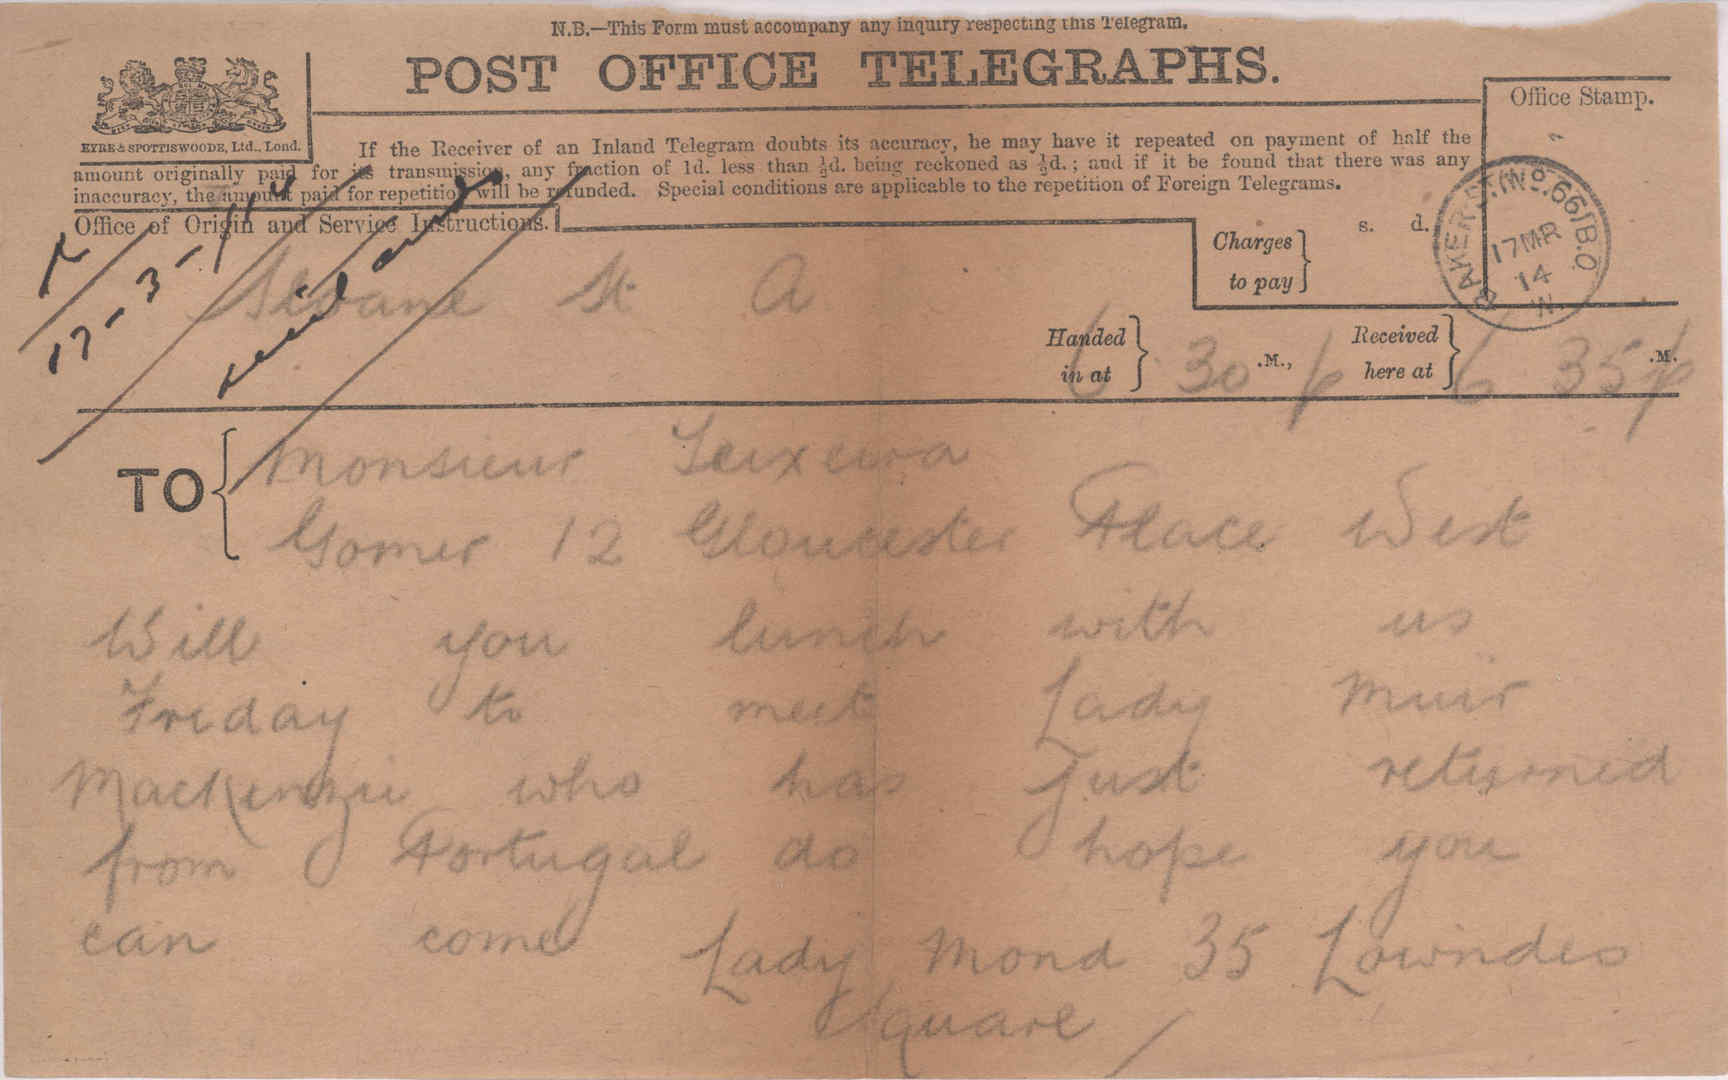 N.B.—This Form must accompany any inquiry respecting this Telegram.
POST OFFICE TELEGRAPHS.
EYRE & SPOTTISWOODE, Ltd., Lond.
Office Stamp.
If the Receiver of an Inland Telegram doubts its accuracy, he may have it repeated on payment of half the
amount originally paid for its transmission, any fraction of 1d. less than ½d. being reckoned as ½d.; and if it be found that there was any
inaccuracy, the amount paid for repetition will be refunded. Special conditions are applicable to the repetition of Foreign Telegrams.
Office of Origin and Service Instructions.
17-3-14
Sloane St A
Charges to pay
s. d.
BAKER ST. (No. 66) B.O. W.
17 MR
14
Handed in at 6 30 p .M.,
Received here at 6 35 p .M.
TO
Monsieur Teixeira
Gomer 12 Gloucester Place West
Will you lunch with us
Friday to meet Lady Muir
Mackenzie who has just returned
from Portugal do hope you
can come Lady Mond 35 Lowndes
Square